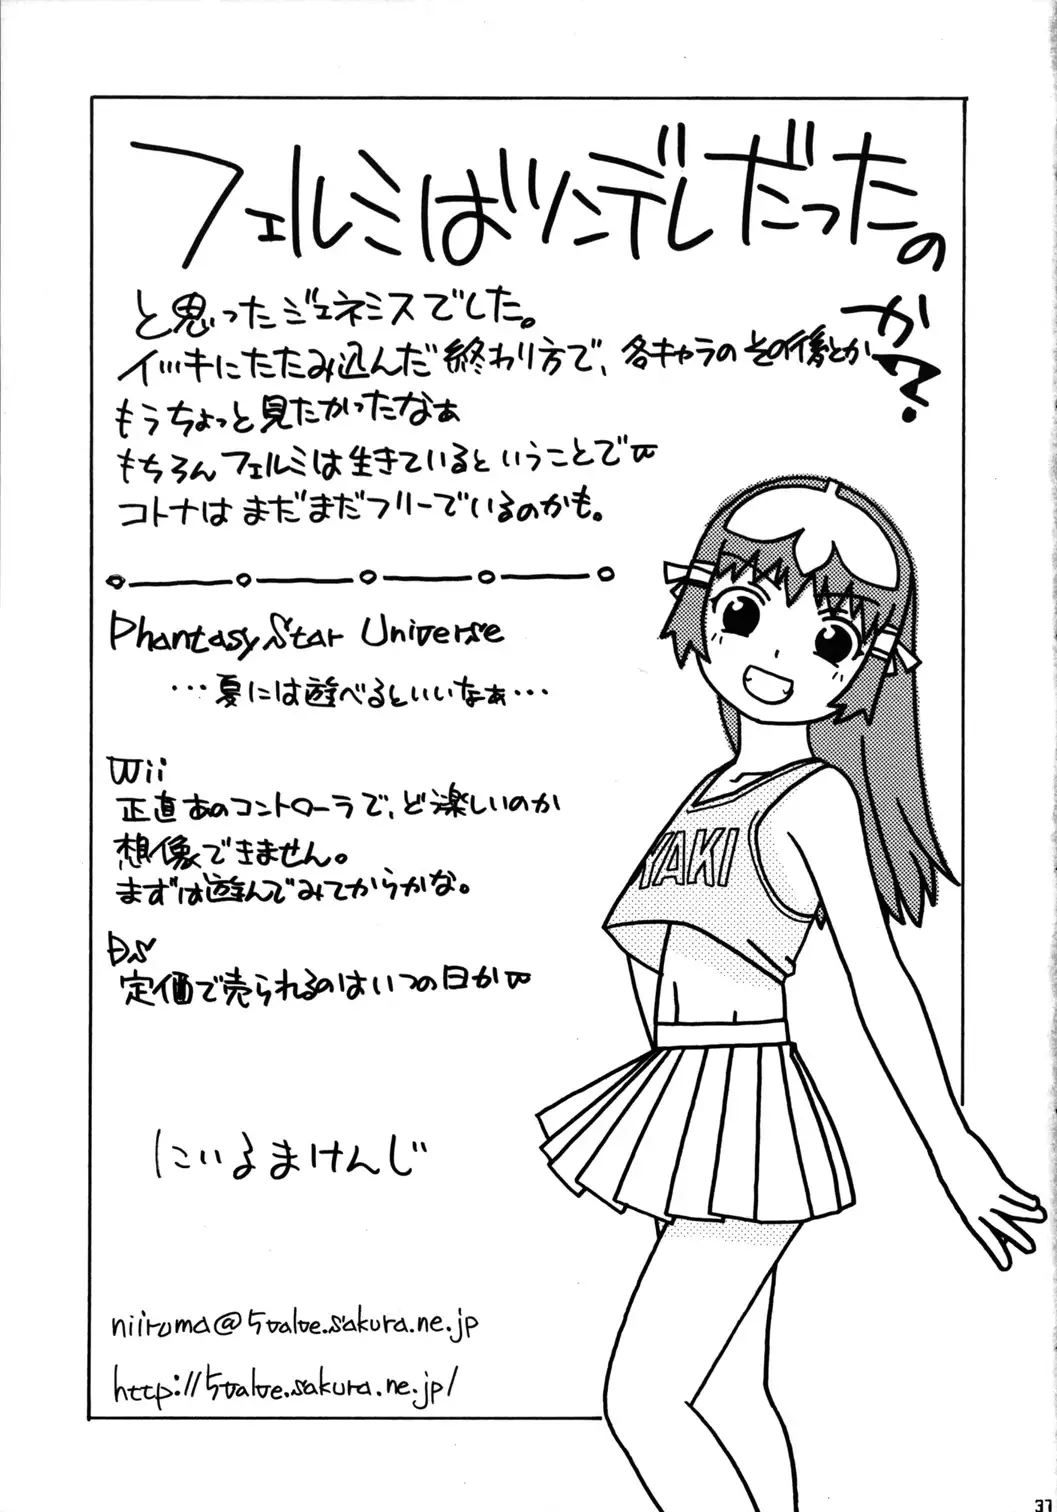 フェルミはツンデレだったのか?
と思ったジェネミスでした。
イッキにたたみ込んだ終わり方で、各キャラのその後とか
もうちょっと見たかったなぁ
もちろんフェルミは生きているということでw
コトナはまだまだフリーでいるのかも。
Phantasy Star Universe
…夏には遊べるといいなぁ…
Wii
正直あのコントローラで、ど楽しいのか
想像できません。
まずは遊んでみてからかな。
DS
定価で売られるのはいつの日かw
YAKI
にいるまけんじ
niiruma@5valve.sakura.ne.jp
http://5valve.sakura.ne.jp/
37